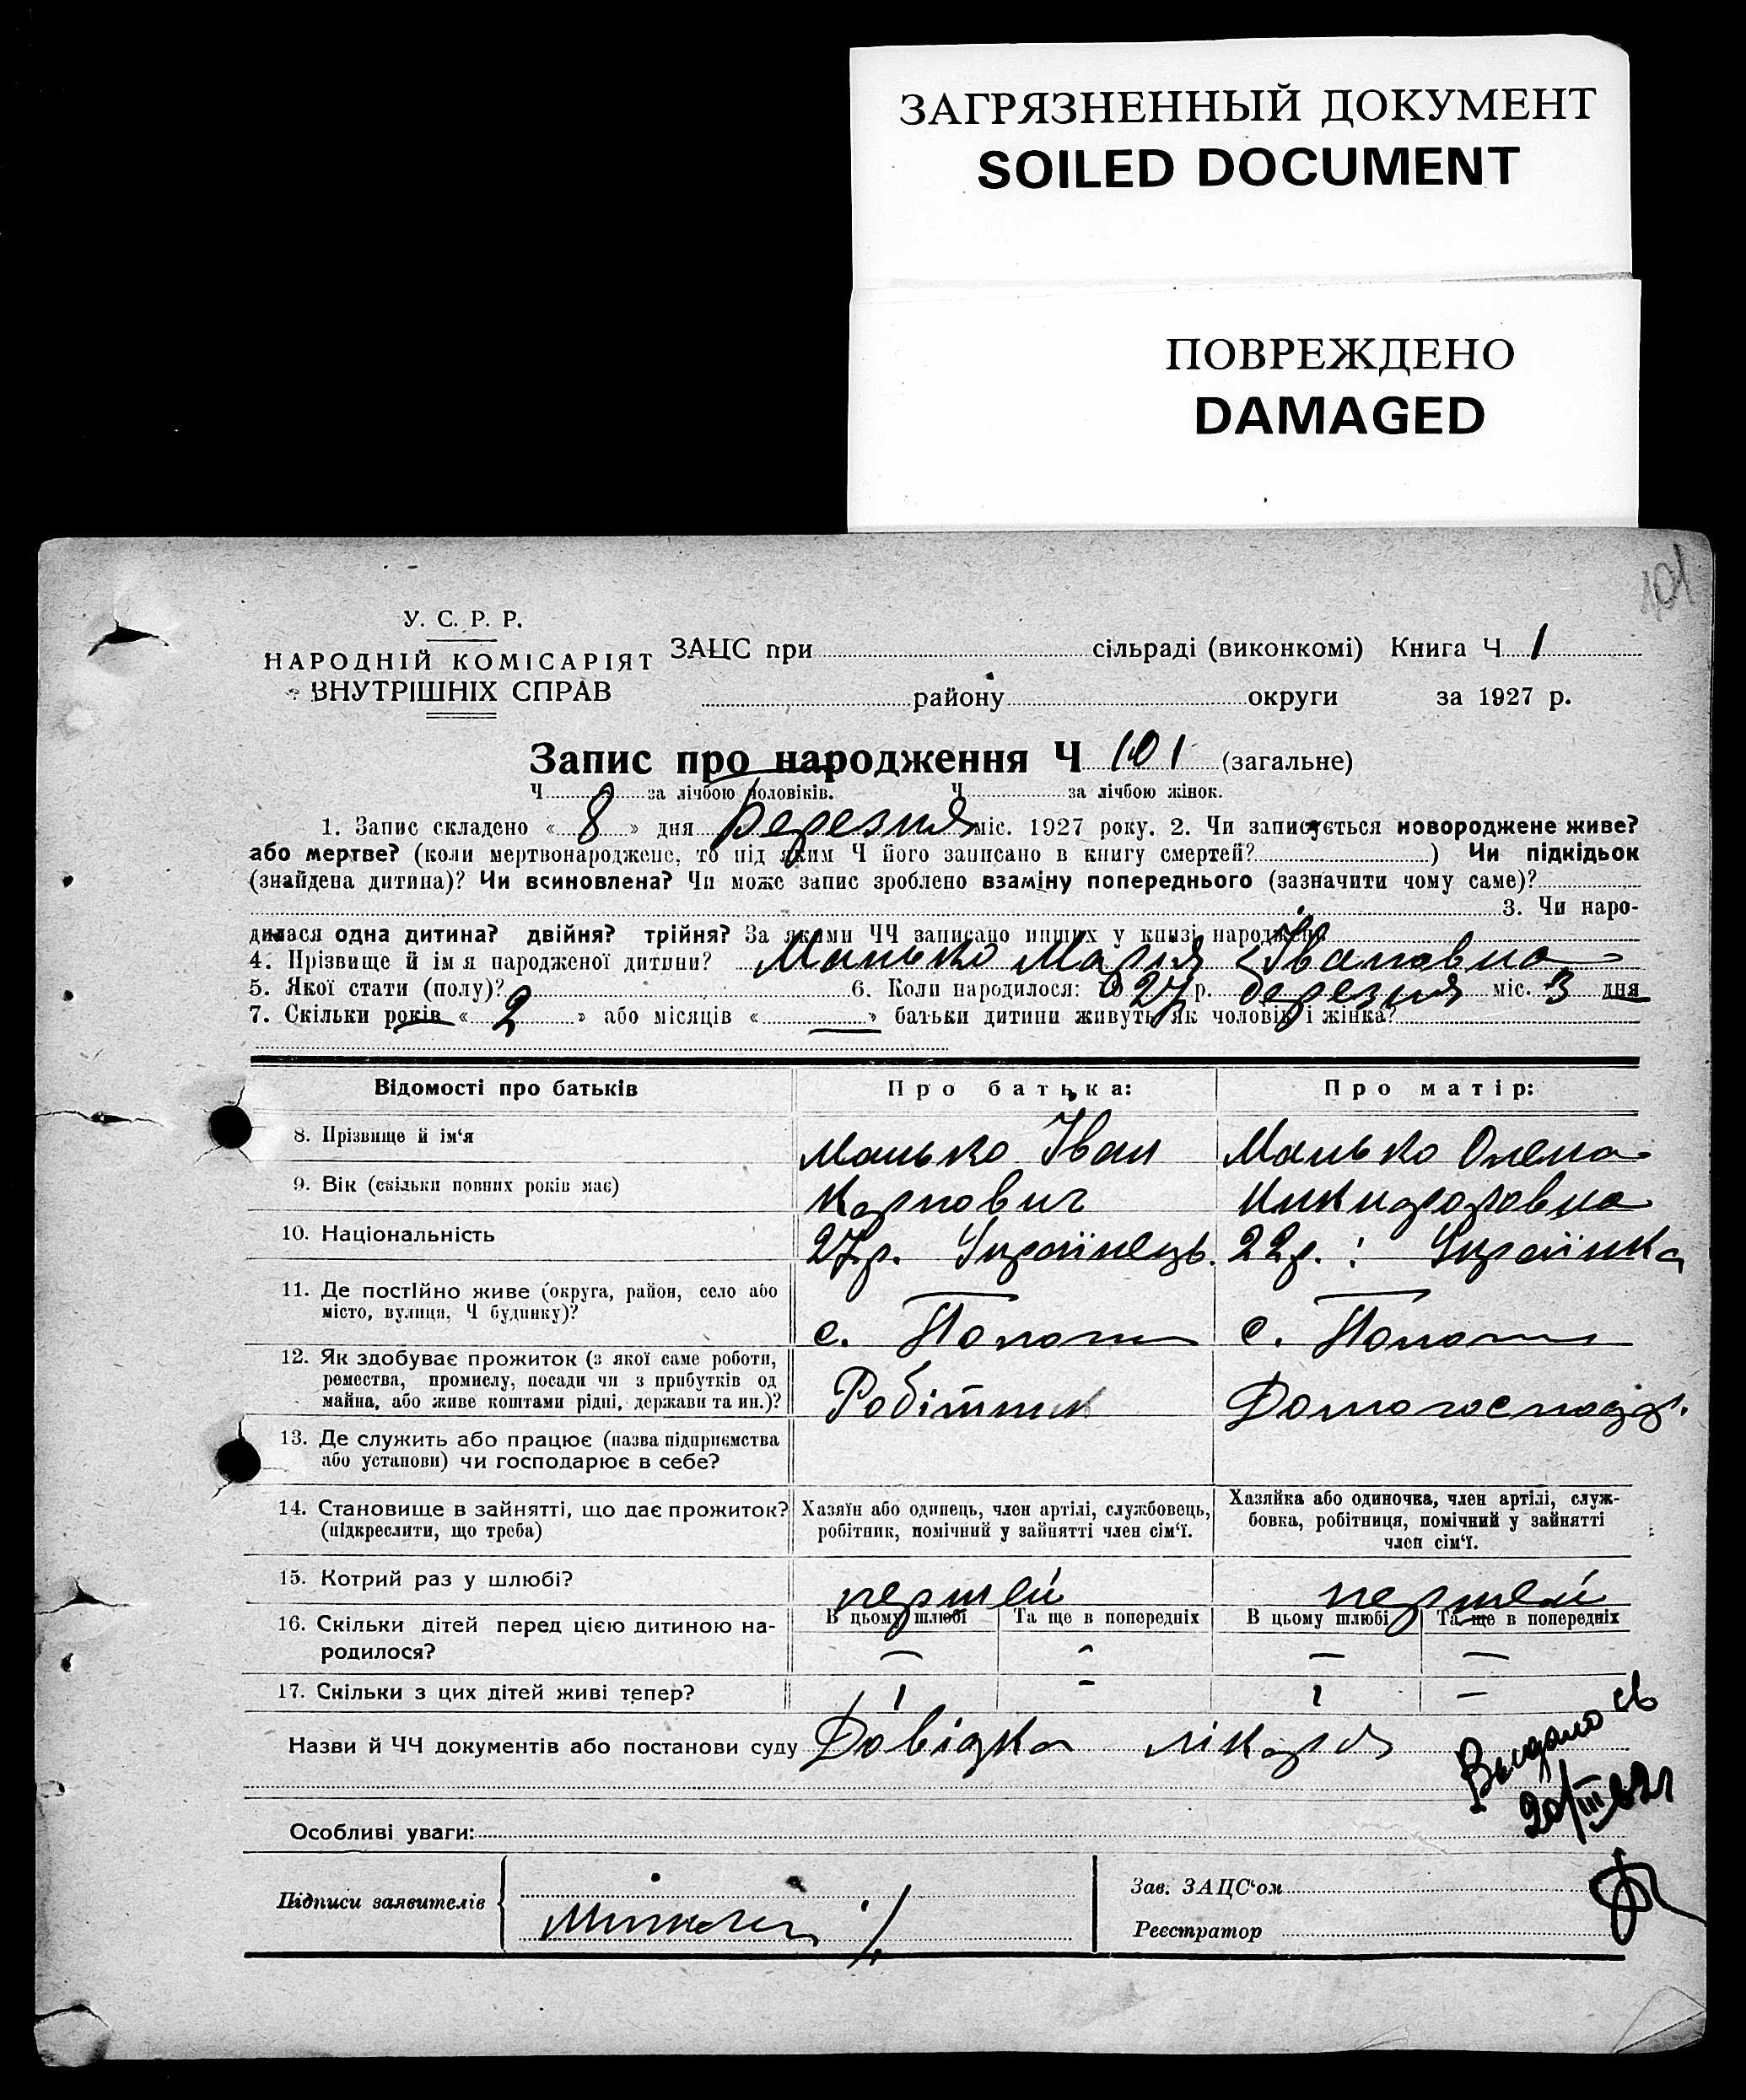 ЗАГРЯЗНЕННЫЙ ДОКУМЕНТ
SOILED DOCUMENT
ПОВРЕЖДЕНО
DAMAGED
101
У. С. Р. Р.
НАРОДНІЙ КОМІСАРІЯТ
ВНУТРІШНІХ СПРАВ
ЗАЦС при сільраді (виконкомі) Книга Ч 1
району округи за 1927 р.
Запис про народження Ч 101 (загальне)
Ч за лічбою чоловіків. Ч за лічбою жінок.
1. Запис складено « 8 » дня березня міс. 1927 року. 2. Чи записується новороджене живе?
або мертве? (коли мертвонароджене, то під яким Ч його записано в книгу смертей? ) Чи підкідьок
(знайдена дитина)? Чи всиновлена? Чи може запис зроблено взаміну попереднього (зазначити чому саме)?
3. Чи наро-
дилася одна дитина? двійня? трійня? За якими ЧЧ записано инших у книзі народжень
4. Прізвище й ім я народженої дитини? Манько Марія Івановна
5. Якої стати (полу)? 6. Коли народилося: 1927 р. березня міс. 3 дня
7. Скільки років « 2 » або місяців « — » батьки дитини живуть як чоловік і жінка?
Відомості про батьків
Про батька:
Про матір:
8. Прізвище й ім'я
Манько Іван
Манько Олена
9. Вік (скільки повних років має)
Карпович
Никифоровна
10. Національність
27р. Українець.
22р. : Українка
11. Де постійно живе (округа, район, село або
місто, вулиця, Ч будинку)?
с. Пологи
с. Пологи
12. Як здобуває прожиток (з якої саме роботи,
ремества, промислу, посади чи з прибутків од
майна, або живе коштами рідні, держави та ин.)?
Робітник
Домогосподар.
13. Де служить або працює (назва підприємства
або установи) чи господарює в себе?
14. Становище в зайнятті, що дає прожиток?
(підкреслити, що треба)
Хазяїн або одинець, член артілі, службовець,
робітник, помічний у зайнятті член сім'ї.
Хазяйка або одиночка, член артілі, служ-
бовка, робітниця, помічний у зайнятті
член сім'ї.
15. Котрий раз у шлюбі?
першей
першей
16. Скільки дітей перед цією дитиною на-
родилося?
В цьому шлюбі
Та ще в попередніх
В цьому шлюбі
Та ще в попередніх
— - — —
17. Скільки з цих дітей живі тепер?
1 - 1 —
Назви й ЧЧ документів або постанови суду Довідка лікаря
Выдано св
20/III 62г
Особливі уваги:
Підписи заявителів
Зав. ЗАЦС'ом
Реєстратор